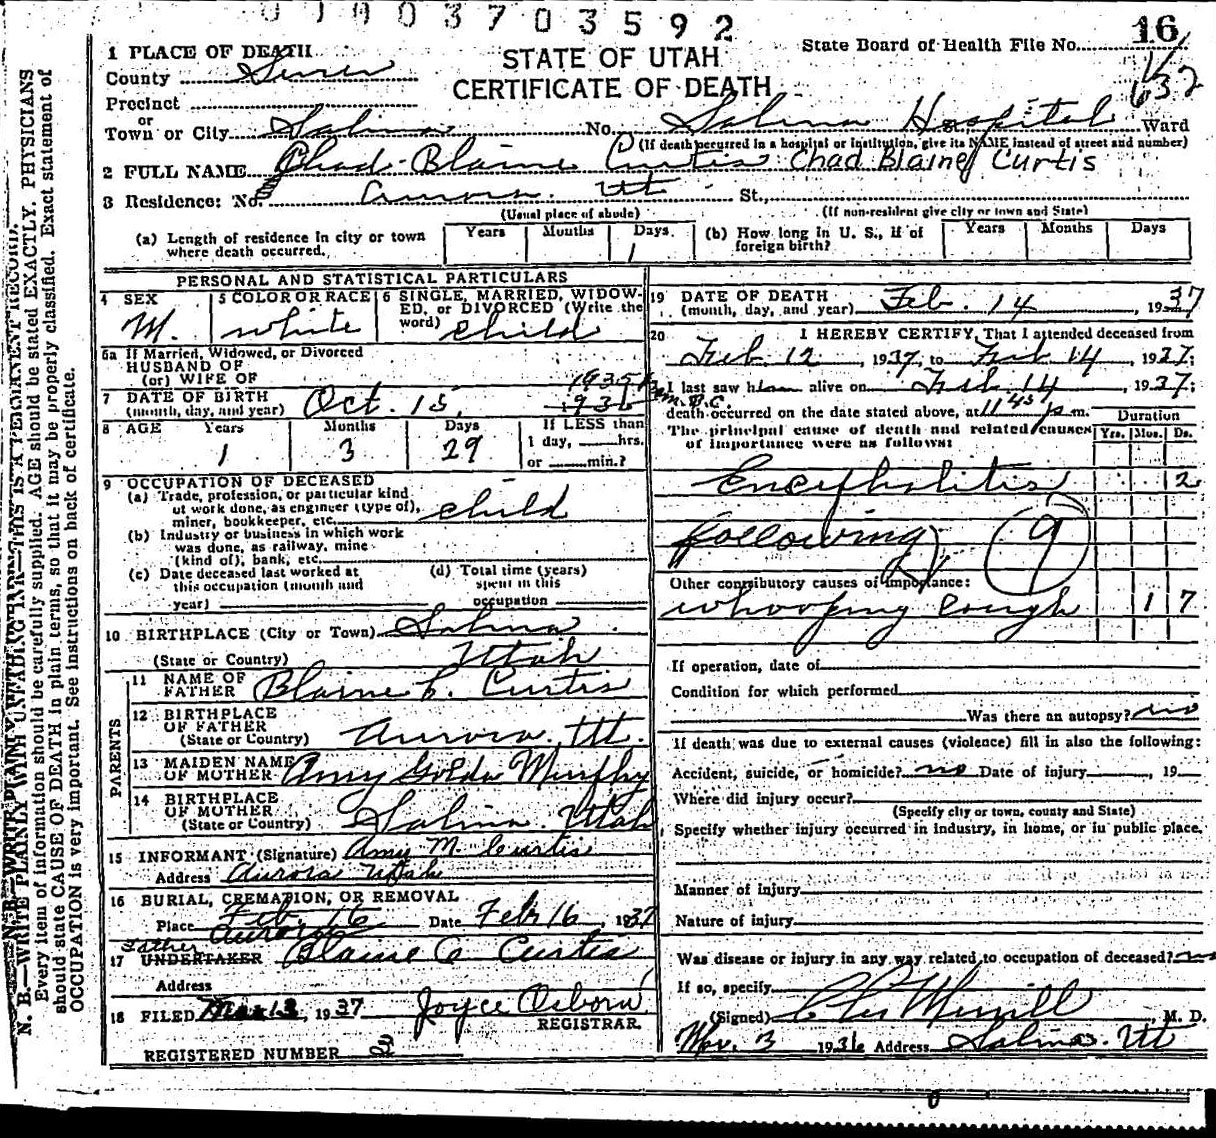 0 1 0 0 3 7 0 3 5 9 2
16
State Board of Health File No.
V
632
STATE OF UTAH
CERTIFICATE OF DEATH
1 PLACE OF DEATH
County Sevier
Precinct
or
Town or City Salina No. Salina Hospital Ward
(If death occurred in a hospital or institution, give its NAME instead of street and number)
2 FULL NAME Chad Blaine Curtis Chad Blaine Curtis
3 Residence: No. Aurora. Ut St.,
(Usual place of abode) (If non-resident give city or town and State)
(a) Length of residence in city or town where death occurred. Years Months Days 1
(b) How long in U. S., if of foreign birth? Years Months Days
PERSONAL AND STATISTICAL PARTICULARS
4 SEX M.
5 COLOR OR RACE white
6 SINGLE, MARRIED, WIDOWED, OR DIVORCED (Write the word) child
6a If Married, Widowed, or Divorced
HUSBAND OF
(or) WIFE OF
1935
7 DATE OF BIRTH
(month, day, and year) Oct. 15, 1936
8 AGE Years 1 Months 3 Days 29 If LESS than 1 day, hrs. or min.?
9 OCCUPATION OF DECEASED
(a) Trade, profession, or particular kind
of work done, as engineer (type of),
miner, bookkeeper, etc. child
(b) Industry or business in which work
was done, as railway, mine
(kind of), bank, etc.
(c) Date deceased last worked at
this occupation (month and
year)
(d) Total time (years)
spent in this
occupation
10 BIRTHPLACE (City or Town) Salina
(State or Country) Utah
PARENTS
11 NAME OF
FATHER Blaine C. Curtis
12 BIRTHPLACE
OF FATHER
(State or Country) Aurora. Ut.
13 MAIDEN NAME
OF MOTHER Amy Golda Murphy
14 BIRTHPLACE
OF MOTHER
(State or Country) Salina. Utah
15 INFORMANT (Signature) Amy M. Curtis
Address Aurora Utah
16 BURIAL, CREMATION, OR REMOVAL
Feb. 16
Place Aurora Date Feb 16, 1937
father
17 UNDERTAKER Blaine C. Curtis
Address
18 FILED Mar 13, 1937 Joyce Osborn
REGISTRAR.
REGISTERED NUMBER
19 DATE OF DEATH
(month, day, and year) Feb. 14, 1937
20 I HEREBY CERTIFY, That I attended deceased from
Feb 12, 1937, to Feb 14, 1937;
I last saw him alive on Feb 14, 1937;
death occurred on the date stated above, at 11 45 p m.
The principal cause of death and related causes
of importance were as follows:
Duration
Yrs. Mos. Ds.
Encepholitis 2
following 9
Other contributory causes of importance:
whooping cough 1 7
If operation, date of
Condition for which performed
Was there an autopsy? no
If death was due to external causes (violence) fill in also the following:
Accident, suicide, or homicide? no Date of injury , 19
Where did injury occur?
(Specify city or town, county and State)
Specify whether injury occurred in industry, in home, or in public place.
Manner of injury
Nature of injury
Was disease or injury in any way related to occupation of deceased? no
If so, specify
(Signed) Merrill, M. D.
Mar. 3 1936 Address Salina. Ut
N. B.—WRITE PLAINLY WITH UNFADING INK—THIS IS A PERMANENT RECORD.
Every item of information should be carefully supplied. AGE should be stated EXACTLY. PHYSICIANS
should state CAUSE OF DEATH in plain terms, so that it may be properly classified. Exact statement of
OCCUPATION is very important. See instructions on back of certificate.